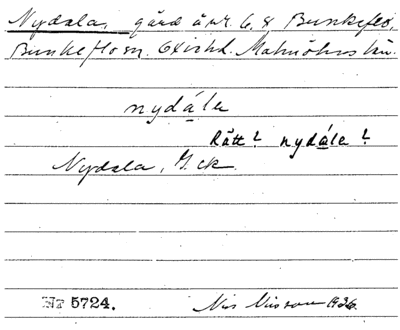 Nydala, gård å nr. 6, 8 Bunkeflo,
Bunkeflo sn. Oxie hd. Malmöhus län.
nydála
Rätt? nydála?
Nydala, G. ek.
Nr 5724. Nils Nilsson 1936.